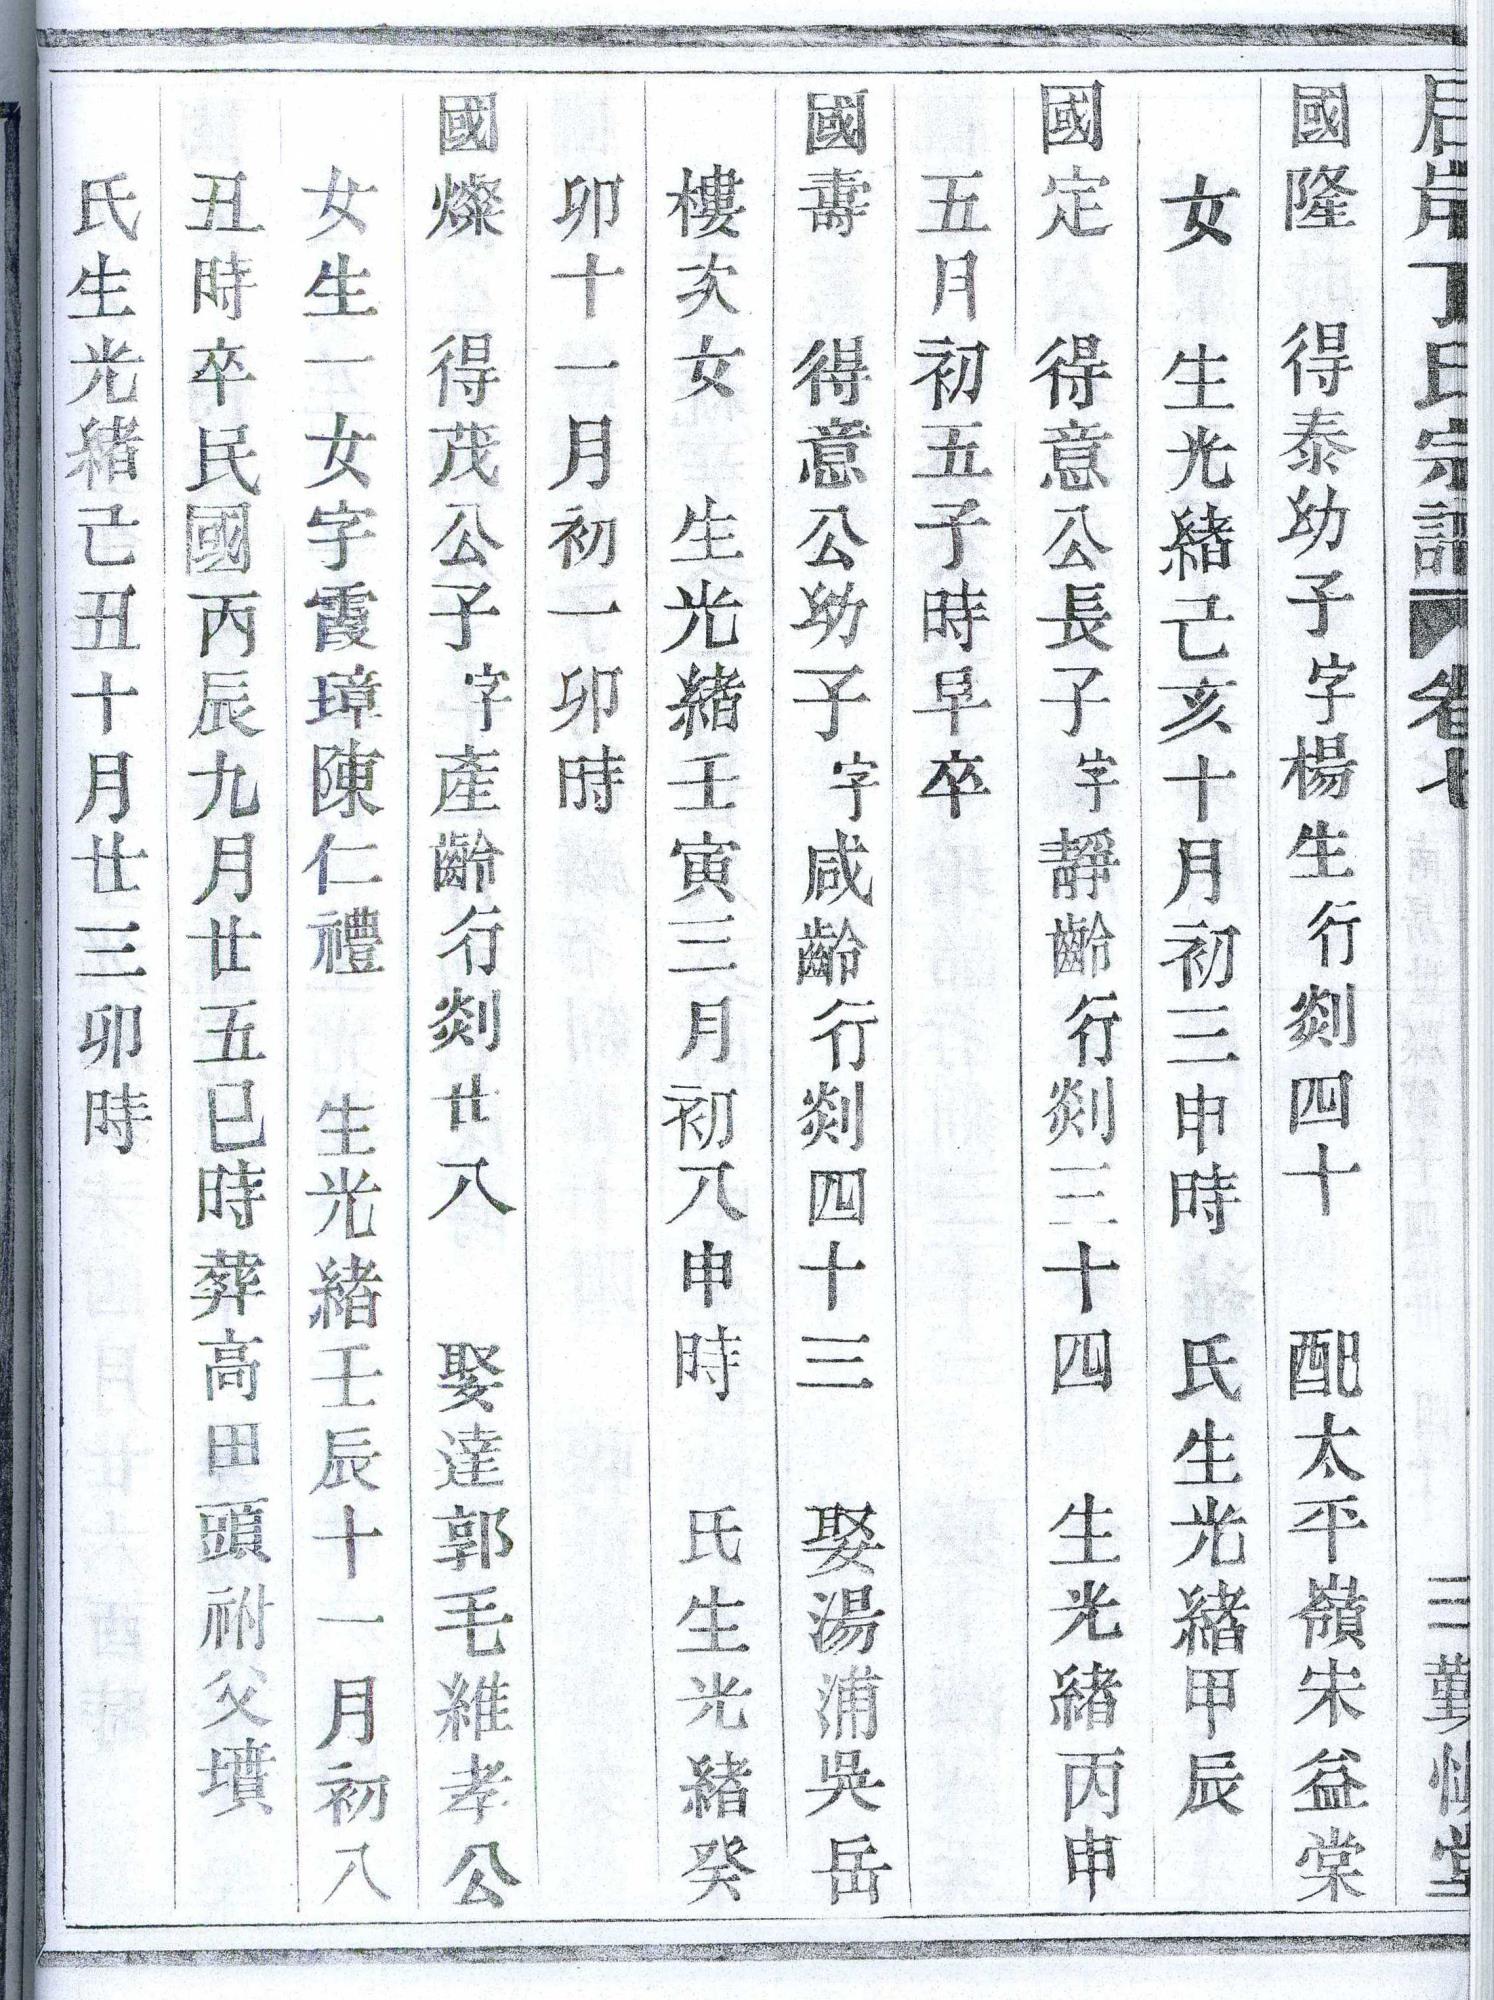 丁氏宗譜 卷七 三 勤慎堂
國隆 得泰幼子字楊生行剡四十 配太平嶺宋益棠
女 生光緒己亥十月初三申時 氏生光緒甲辰
國定 得意公長子字靜齡行剡三十四 生光緒丙申
五月初五子時早卒
國壽 得意公幼子字咸齡行剡四十三 娶湯浦吳岳
樓次女 生光緒壬寅三月初八申時 氏生光緒癸
卯十一月初一卯時
國燦 得茂公子字產齡行剡廿八 娶達郭毛維孝公
女生一女字霞璋陳仁禮 生光緒壬辰十一月初八
丑時卒民國丙辰九月廿五巳時葬高田頭祔父墳
氏生光緒己丑十月廿三卯時